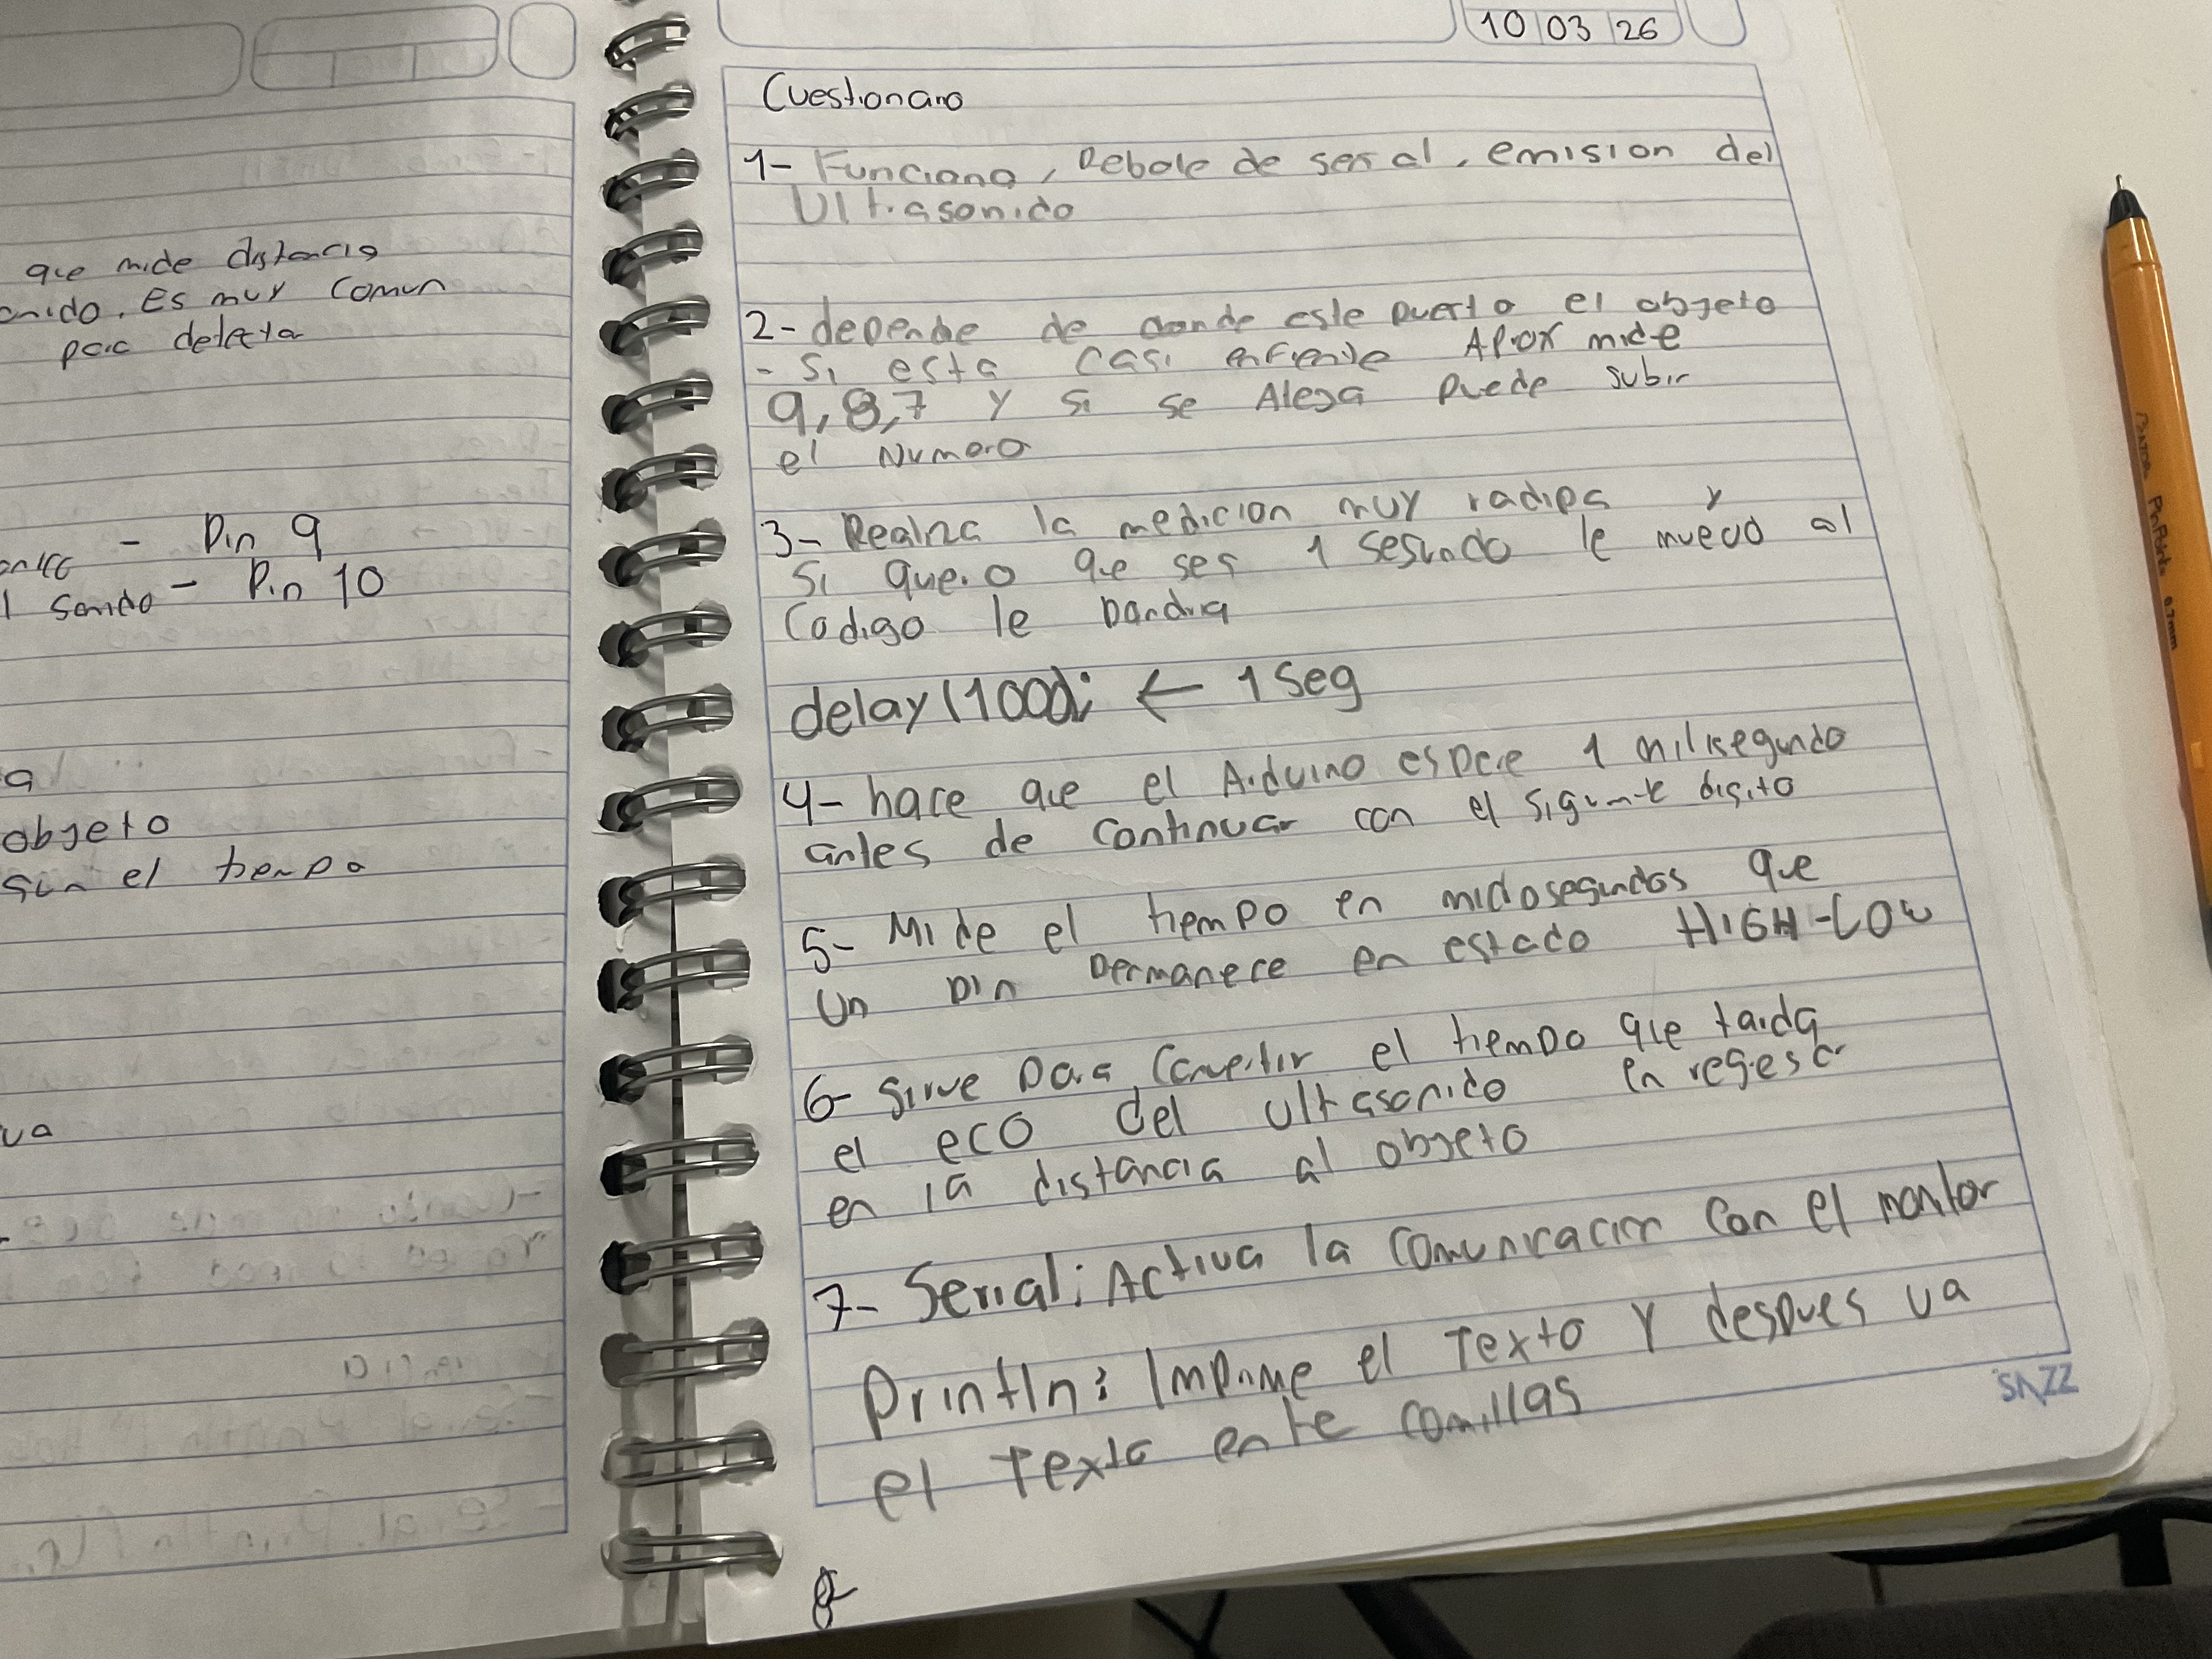 que mide distancia
onido. Es muy comun
para detectar
- Pin 9
l sonido - Pin 10
a
objeto
sun el tiempo
va
10 03 26
Cuestionario
1- Funciona, Rebote de señal, emision del
Ultrasonido
2- depende de donde este puesto el objeto
- Si esta casi enfrente Aprox mide
9,8,7 y si se Aleja puede subir
el Numero
3- Realiza la medicion muy radipa y
si quiero que sea 1 segundo le muevo al
Codigo le pondria
delay(1000); ← 1 Seg
4- hace que el Arduino espere 1 milisegundo
antes de continuar con el siguinte digito
5- Mide el tiempo en microsegundos que
un pin permanece en estado HIGH-LOW
6- Sirve para Convertir el tiempo que tarda
el eco del ultrasonido en regesar
en la distancia al objeto
7- Serial: Activa la comunicacion con el monitor
Println: Imprime el Texto y despues va
el Texto ente comillas
8-
SAZZ
Pin Point 0.7mm